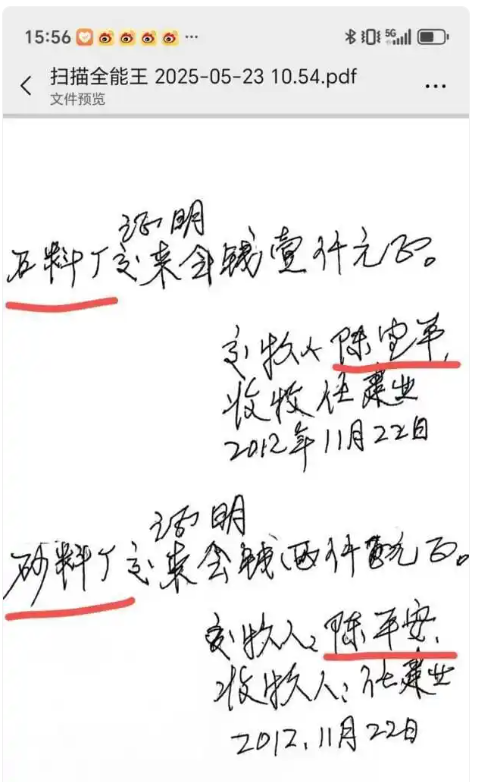 15:56
5G
扫描全能王 2025-05-23 10.54.pdf
文件预览
证明
石料厂交来全钱壹仟元正。
交款人 陈宝革,
收款 任建业
2012年11月22日
证明
砂料厂交来全钱两仟元正。
交款人:陈平安.
收款人:任建业
2012.11月22日